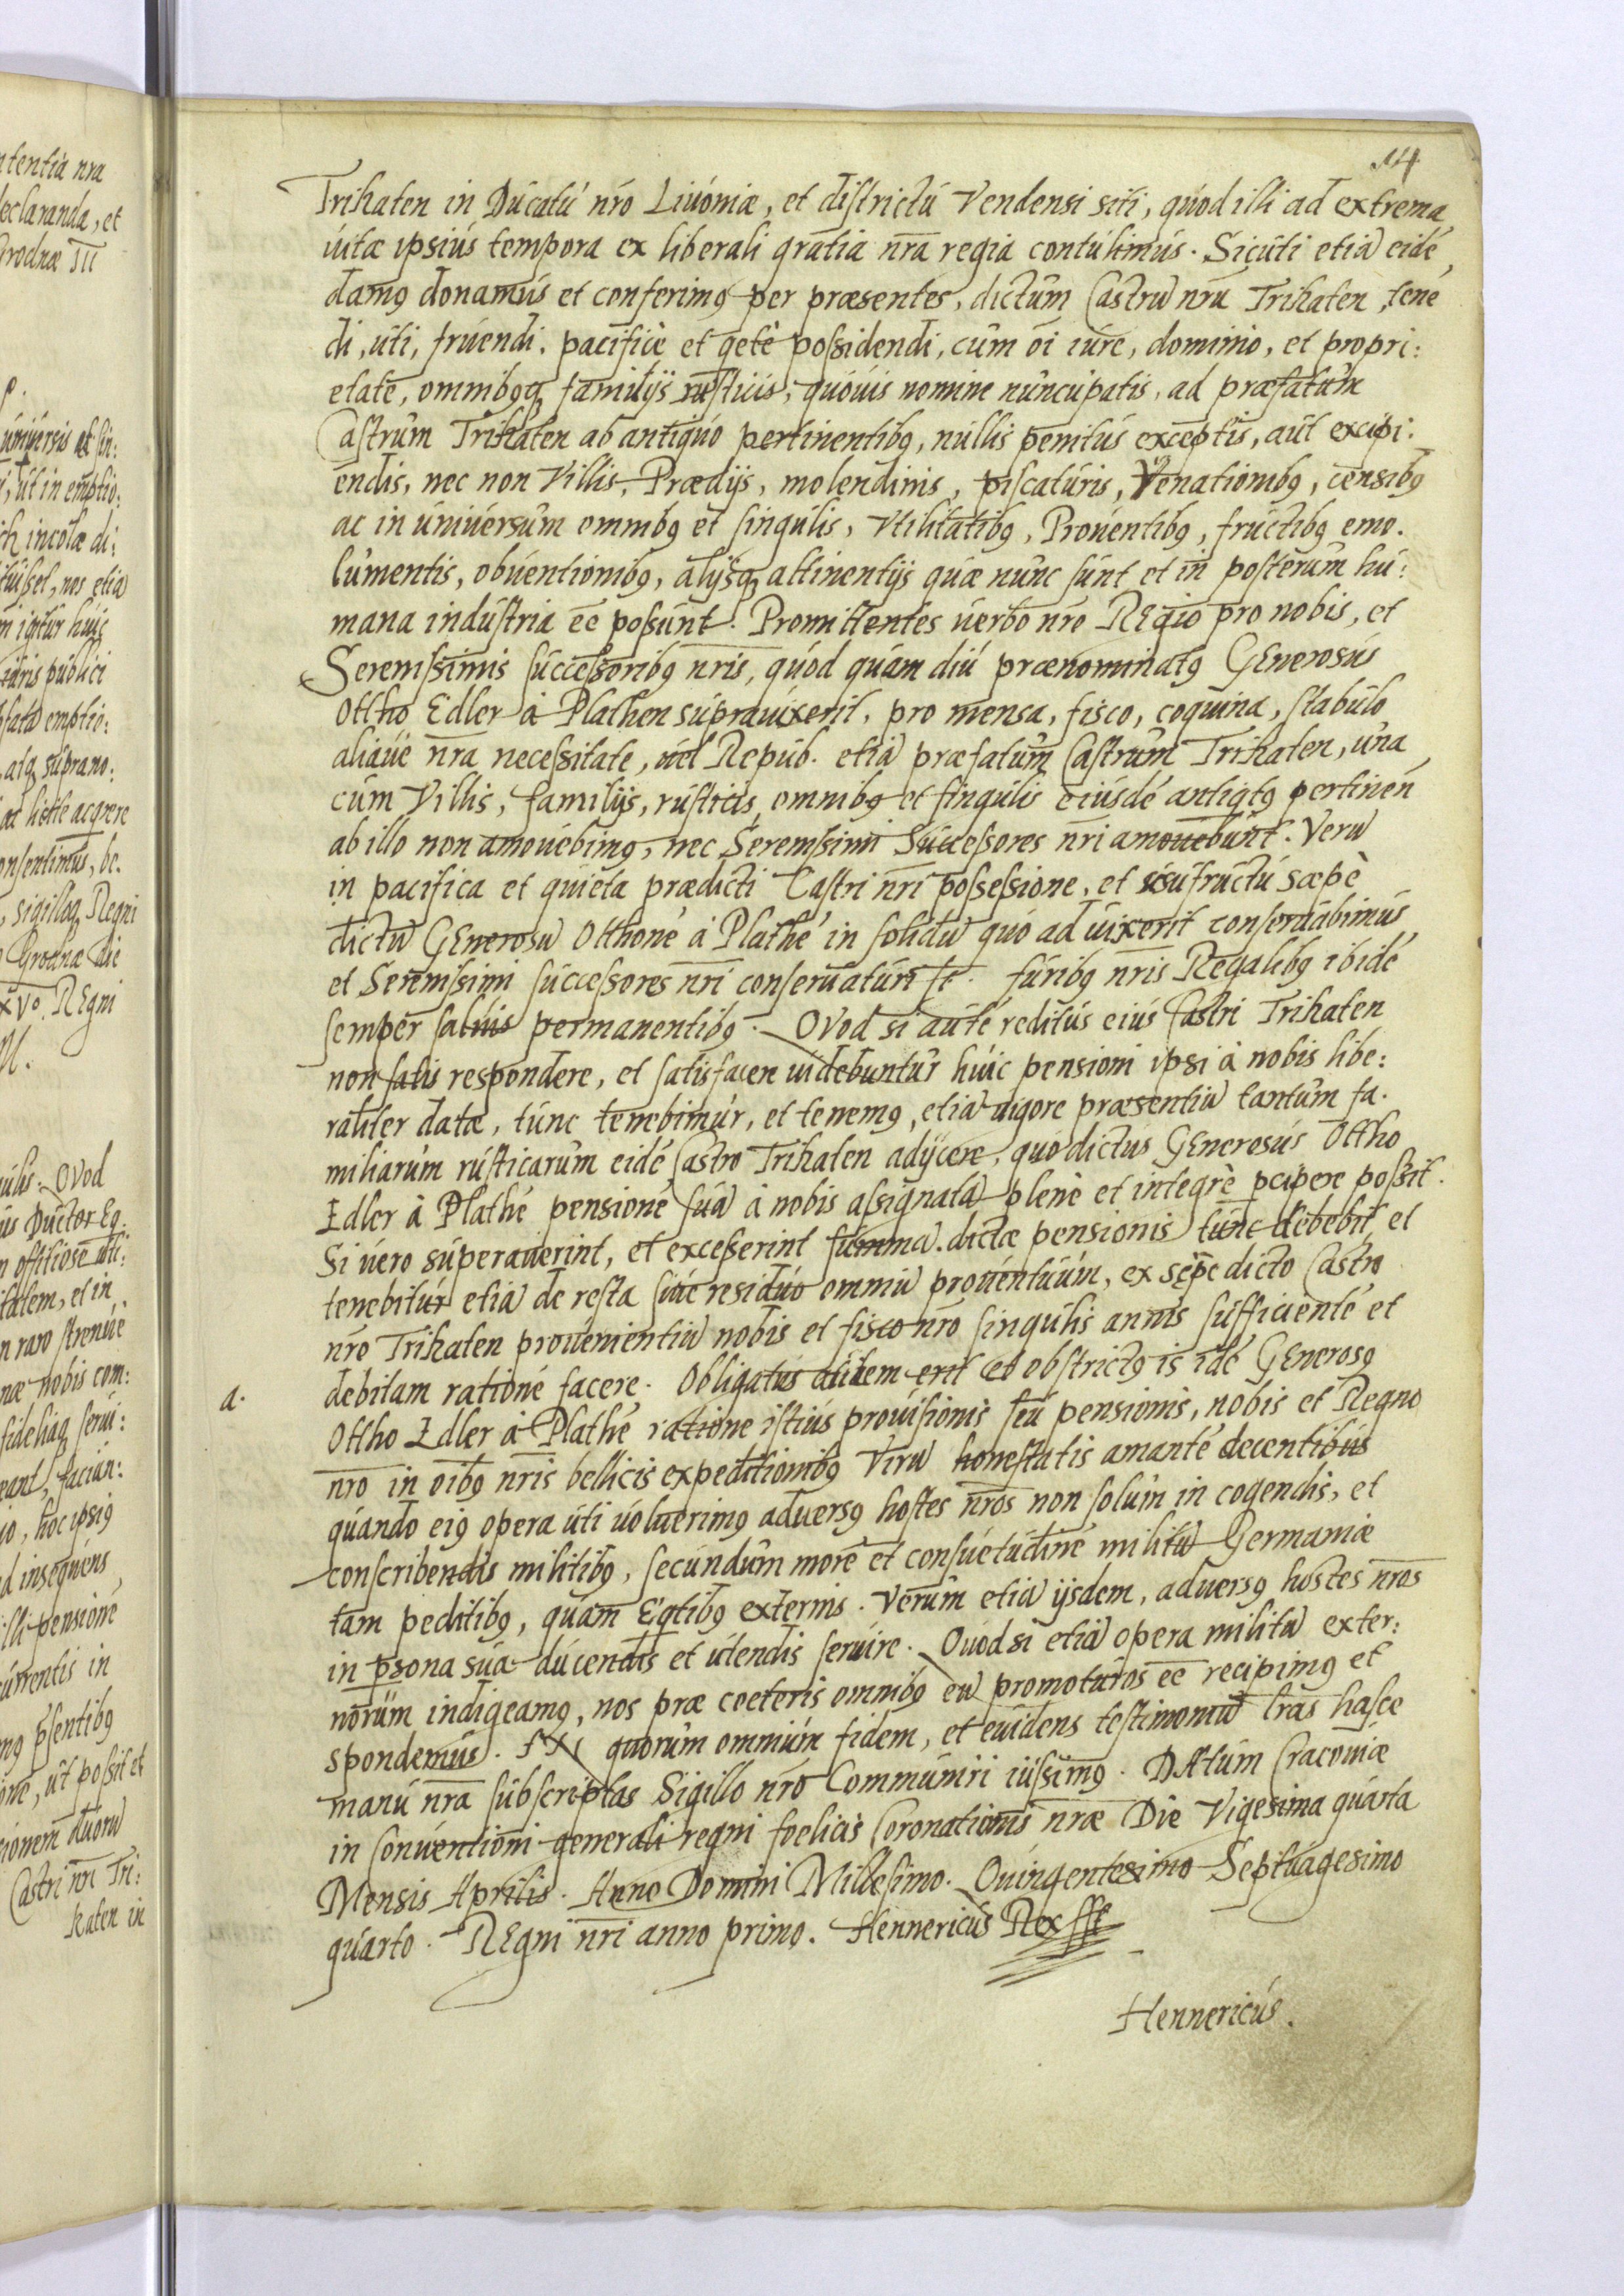 114
Trikaten in Ducatu nro Livoniæ, et districtu Vendensi siti, quod illi ad extrema
uitæ ipsius tempora ex liberali gratia nra regia contulimus. Sicuti etiā eidē
damꝰ donamus et conferimꝰ per præsentes, dictum Castrū nrū Trikaten, tenē
di, uti, fruendi, pacificè et qetè possidendi, cum oi iure, dominio, et propri:
etate, omnibꝰqꝫ familijs rusticis, quouis nomine nuncupatis, ad præfatum
Castrum Trikaten ab antiquo pertinentibꝰ, nullis penitus exceptis, aut excipi:
endis, nec non Villis, Prædijs, molendinis, piscaturis, Venationibꝰ, censibꝰ
ac in uniuersum omnibꝰ et singulis, Vtilitatibꝰ, Prouentibꝰ, fructibꝰ emo.
lumentis, obuentionibꝰ, alijsqꝫ attinentijs quæ nunc sunt et in posterum hu:
mana industria ēē possunt. Promittentes uerbo nro REgio pro nobis, et
Serenissimis successoribꝰ nris, quod quam diu prænominatꝰ GEnerosus
Ottho Edler à Plathen supravixerit, pro mensa, fisco, coquina, stabulo
aliaue nra necessitate, uel Repub. etiā præfatum Castrum Trikaten, una
cum Villis, familijs, rusticis, omnibꝰ et singulis eiusdē antiqtꝰ pertinen
ab illo non amouebimꝰ, nec Serenissimi Successores nri amouebunt. Verū
in pacifica et quieta prædicti Castri nri possessione, et usufructu sæpè
dictū GEnerosū Otthonē à Plathē in solidū quo ad uixerit conseruabimus
et Serenissimi successores nri conseruaturi st. Iuribꝰ nris Regalibꝰ ibidē
semper saluis permanentibꝰ. QVod si autē reditus eius Castri Trikaten
non satis respondere, et satisfacere uidebuntur huic pensioni ipsi à nobis libe:
raliter datæ, tunc tenebimur, et tenemꝰ, etiā uigore præsentiū tantum fa.
miliarum rusticarum eidē Castro Trikaten adijcere, quo dictus GEnerosus Ottho
Edler à Plathē pensionē suā à nobis assignatā plenè et integrè pcipere possit.
Si uero superauerint, et excesserint summā dictæ pensionis tunc debebit, et
tenebitur etiā de resta siue residuo omniū prouentuum, ex sępe dicto Castro
nro Trikaten prouenientiū nobis et fisco nro singulis annis sufficientē et
a. debitam rationē facere. Obligatus autem erit et obstrictꝰ is idē GEnerosꝰ
Ottho Edler à Plathē ratione istius prouisionis seu pensionis, nobis et Regno
nro in oibꝰ nris bellicis expeditionibꝰ Virū honestatis amantē decentibus
quando eiꝰ opera uti uoluerimꝰ aduersꝰ hostes nros non solum in cogendis, et
conscribendis militibꝰ, secundum morē et consuetudinē militū Germaniæ
tam peditibꝰ, quam Eqtibꝰ externis. Verum etiā ijsdem, aduersꝰ hostes nros
in psona sua ducendis et utendis seruire. Quod si etiā opera militū exter:
norum indigeamꝰ, nos præ coeteris omnibꝰ eū promoturos ēē recipimꝰ et
spondemus. IN quorum omnium fidem, et euidens testimoniū lras hasce
manu nra subscriptas Sigillo nro Communiri iussimꝰ. DAtum Cracouiæ
in Conuentioni generali regni foelicis Coronationis nræ Die Vigesima quarta
Mensis Aprilis. Anno Domini Millesimo. Quingentesimo Septuagesimo
quarto. REgni nri anno primo. Hennericus Rex sst
Hennericus.